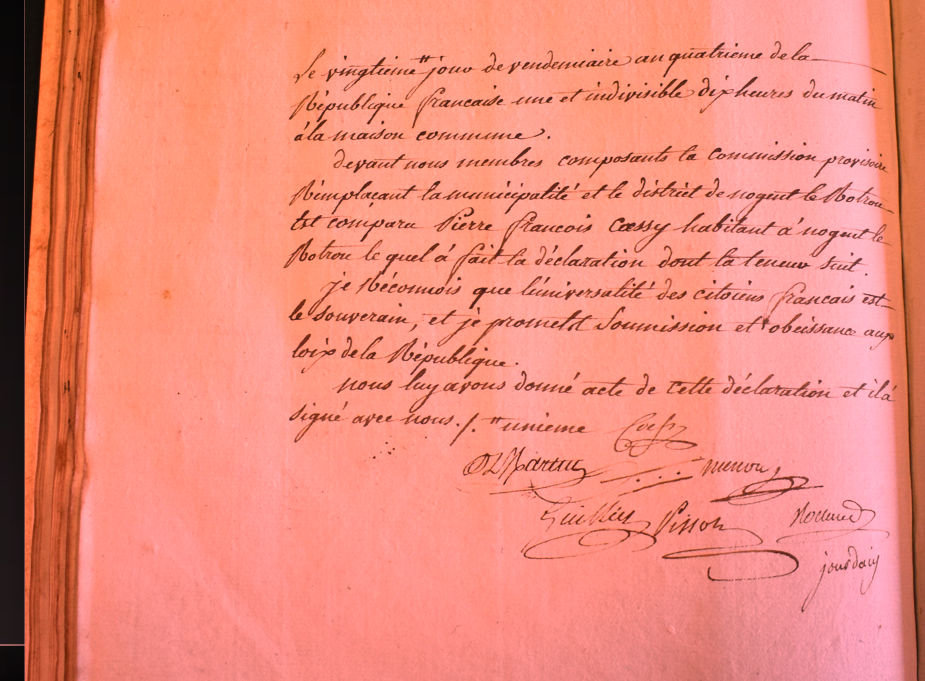 Le vingtieme " jour de vendemiaire an quatrieme de la
République francaise une et indivisible dix heures du matin
à la maison commune.
devant nous membres composants la commission provisoire
Remplaçant la municipalité et le district de nogent le Rotrou
Est comparu Pierre françois Cœssy habitant à nogent le
Rotrou le quel à fait la déclaration dont la teneur suit.
je Réconnois que l'universalité des citoiens francais est
le Souverain, et je promets Soumission et obeissance aux
loix de la République.
nous luy avons donné acte de cette déclaration et il à
signé avec nous. /. " unieme
Menou
Pisson
jourdain